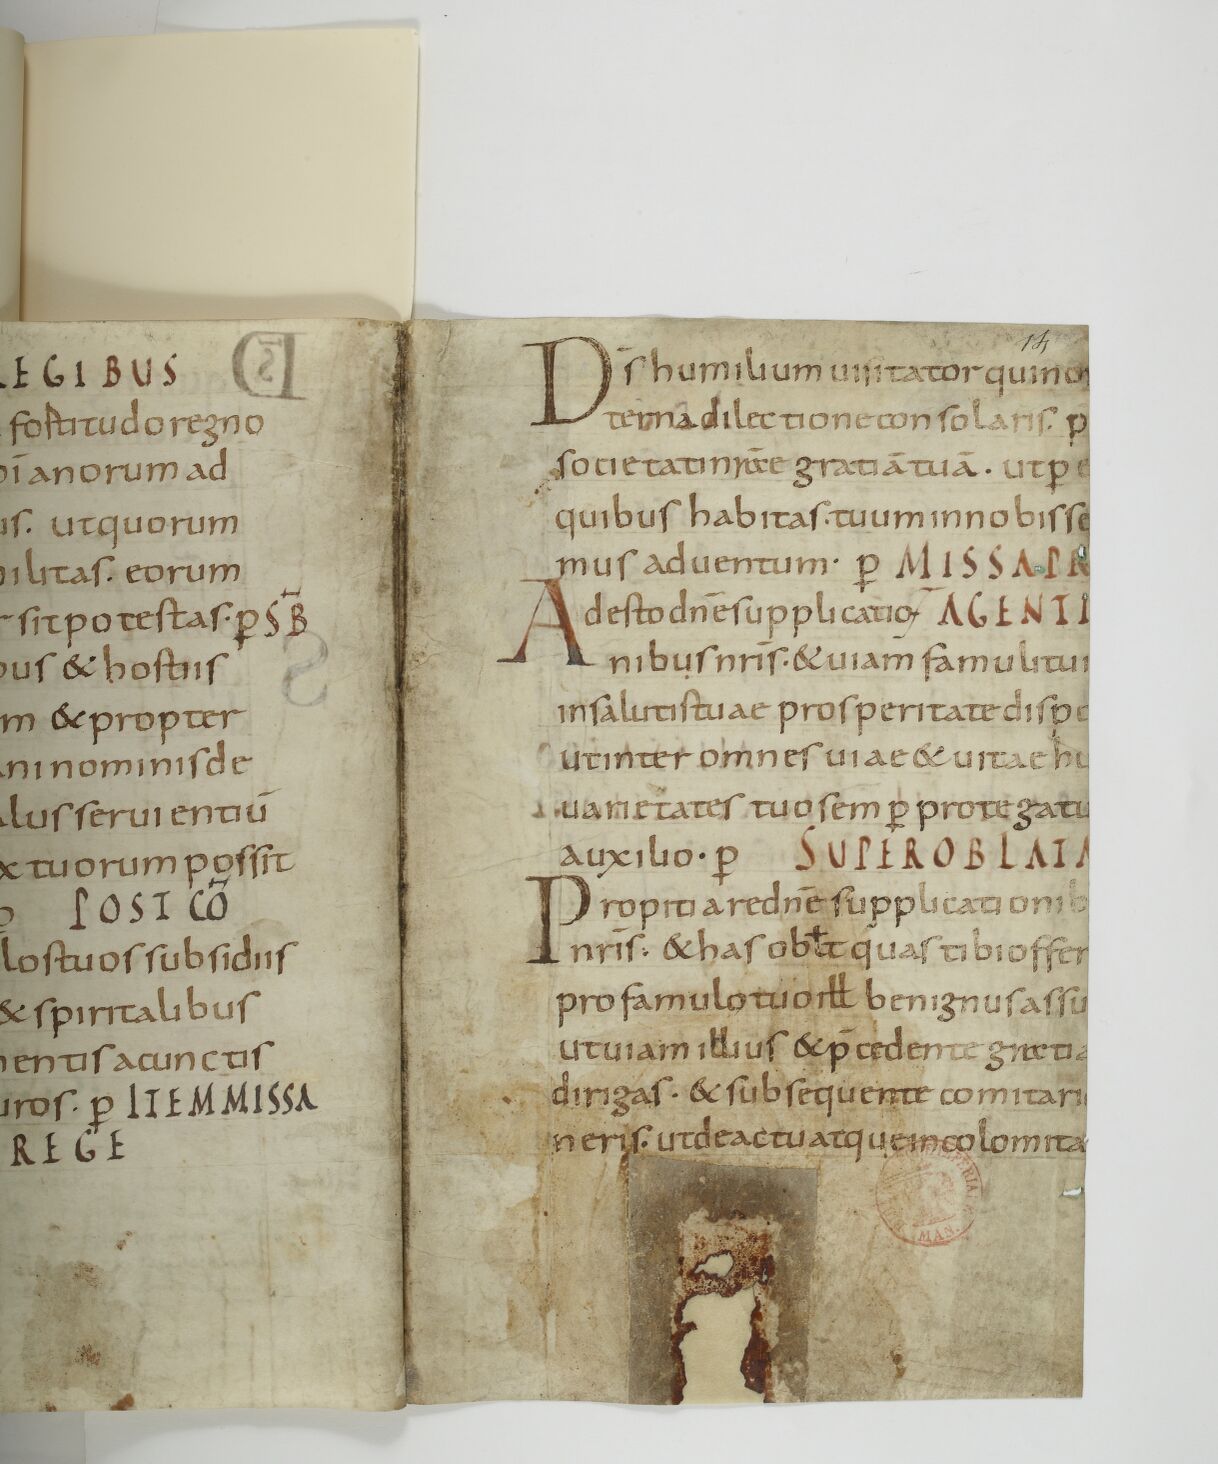 EGIBUS
fortitudo regno
anorum ad
us. ut quorum
ilitas. eorum
sit potestas. ꝑ S̄B̄
bus & hostiis
m & propter
ani nominis de
alus seruientiū
x tuorum possit
POST CŌ
los tuos subsidiis
& spiritalibus
entis a cunctis
uros. ꝑ ITEM MISSA
REGE
14
D̄s humilium uisitator qui no
terna dilectione consolaris. p̄
societati nr̄ae gratiā tuā. ut ꝑ e
quibus habitas. tuum in nobis se
mus aduentum. ꝑ MISSA PR
Adesto dn̄e supplicatio AGENTI
nibus nr̄is. & uiam famuli tui
in salutis tuae prosperitate dispo
ut inter omnes uiae & uitae hu
uarietates tuo semꝑ protegatu
auxilio. ꝑ SUPER OBLATA
Propitiare dn̄e supplicationib
nr̄is. & has obłt quas tibi offer
pro famulo tuo ill benignus assu
ut uiam illius & p̄cedente gratia
dirigas. & subsequente comitari
neris. ut de actu atque incolomita
MAN.